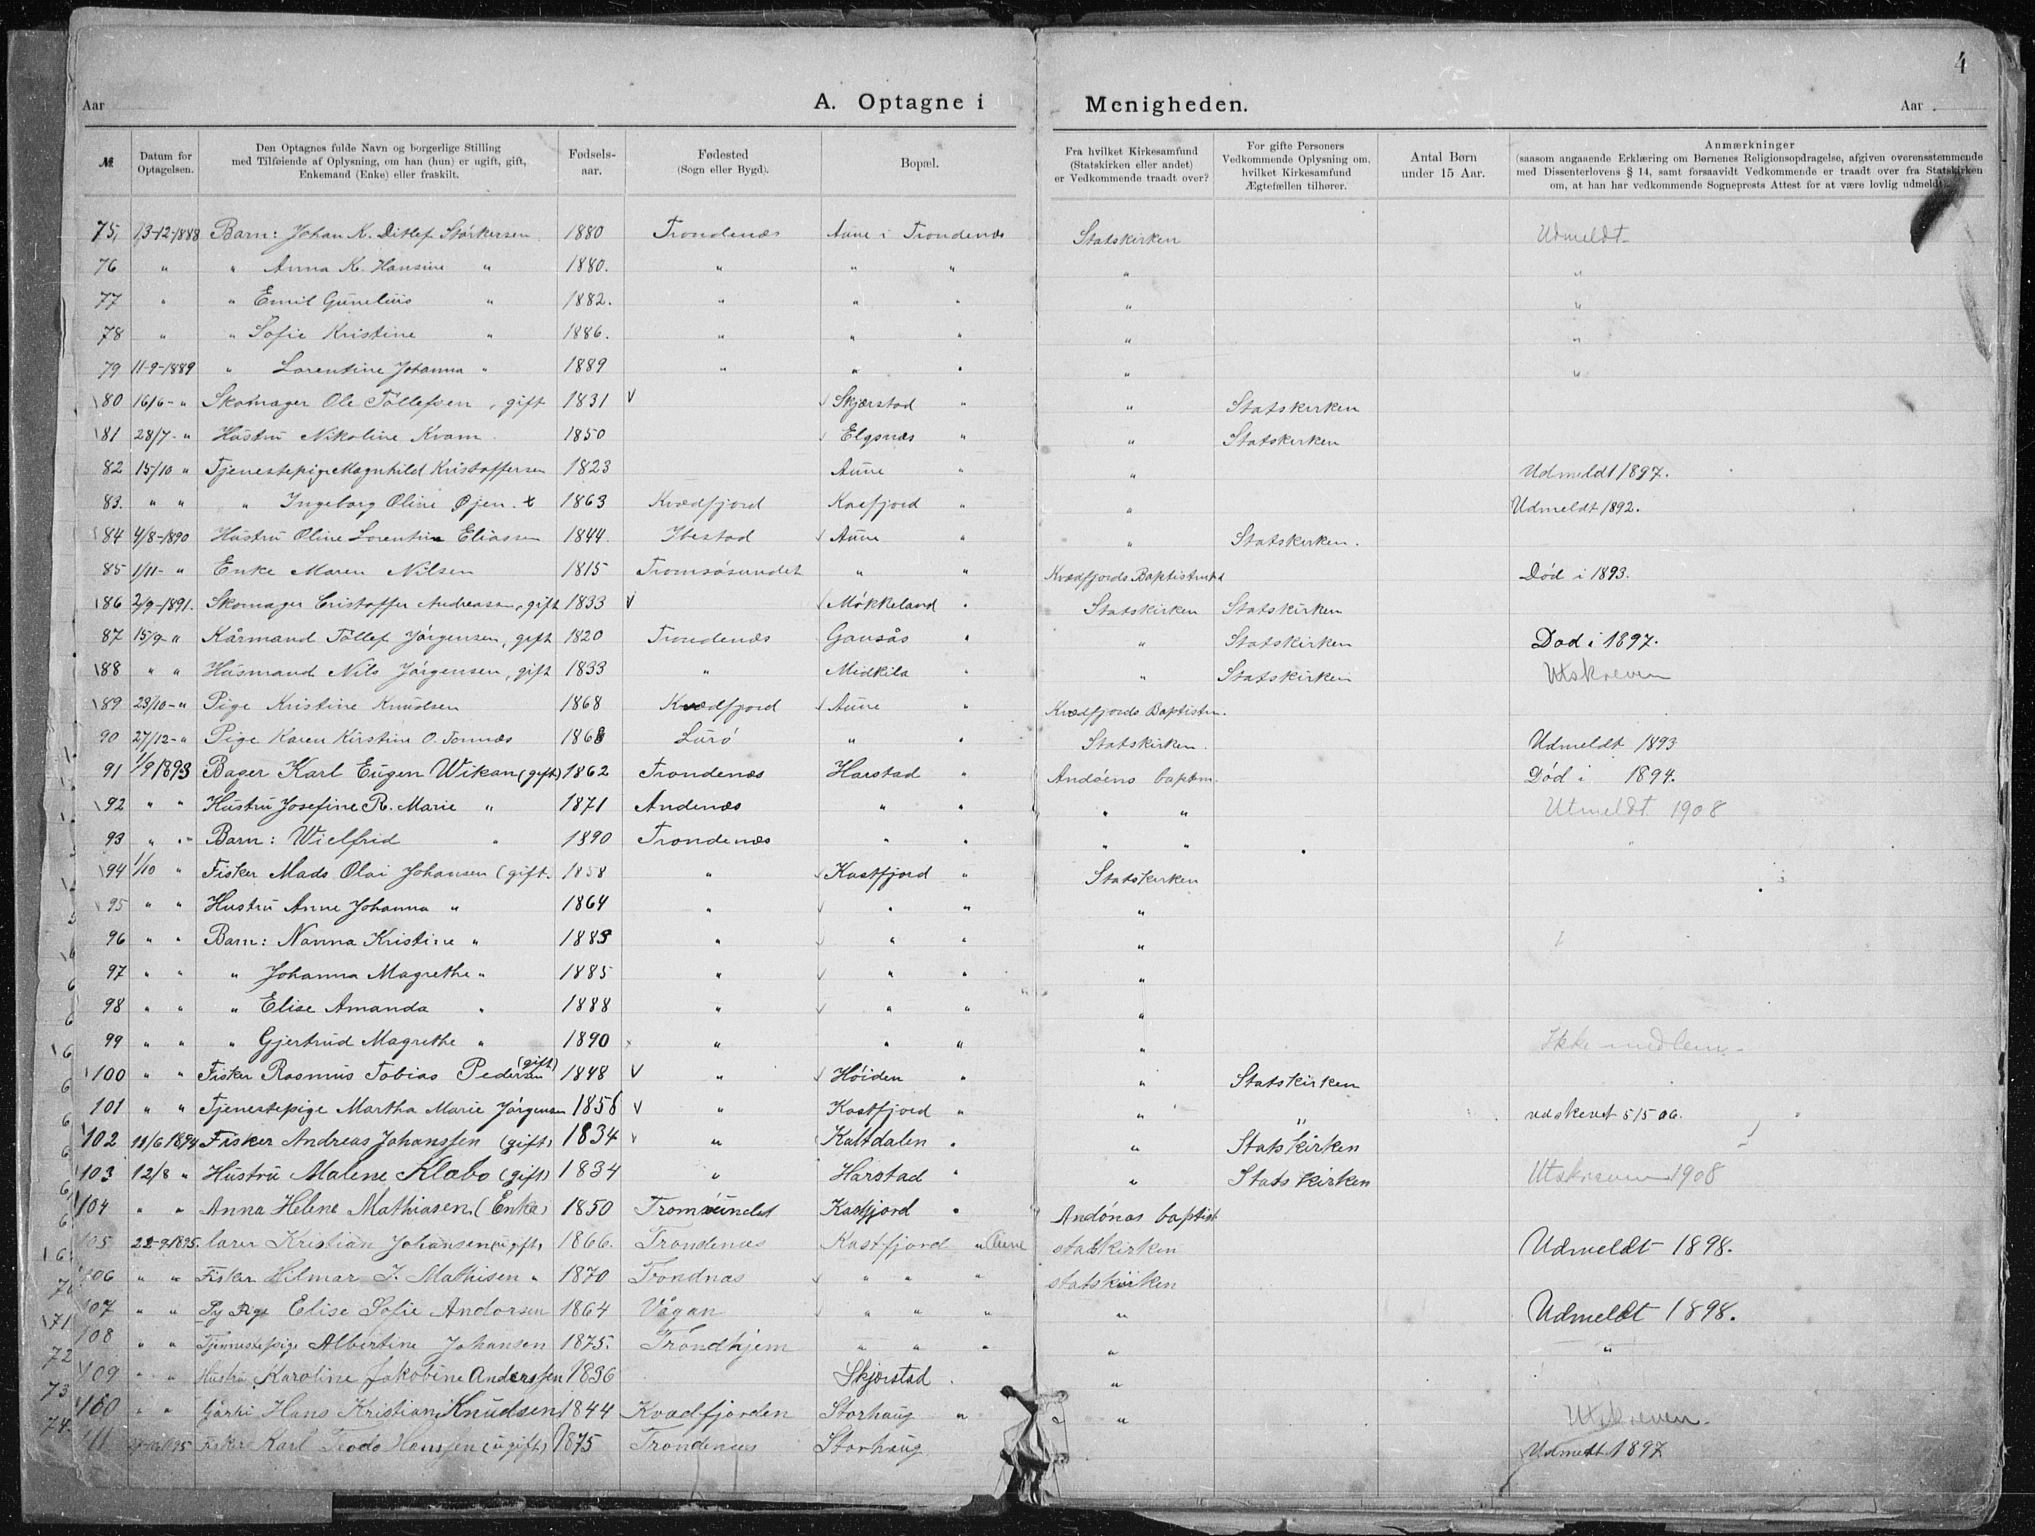 4
Aar
A. Optagne i Menigheden.
Aar
№
Datum for Optagelsen.
Den Optagnes fulde Navn og borgerlige Stilling med Tilføiende af Oplysning, om han (hun) er ugift, gift, Enkemand (Enke) eller fraskilt.
Fødsels-aar.
Fødested (Sogn eller Bygd).
Bopæl.
Fra hvilket Kirkesamfund (Statskirken eller andet) er Vedkommende traadt over?
For gifte Personers Vedkommende Oplysning om, hvilket Kirkesamfund Ægtefællen tilhører.
Antal Børn under 15 Aar.
Anmærkninger (saasom angaaende Erklæring om Børnenes Religionsopdragelse, afgiven overensstemmende med Dissenterlovens § 14, samt forsaavidt Vedkommende er traadt over fra Statskirken om, at han har vedkommende Sogneprests Attest for at være lovlig udmeldt).
75, 13-12-1888 Barn: Johan K. Ditlef Störkersen 1880 Trondenæs Aune i Trondenæs Statskirken Udmeldt
76 " " Anna K. Hansine " 1880. " " " " "
77 " " Emil Gunelius " 1882. " " " " "
78 " " Sofie Kristine " 1886. " " " " "
79 11-9-1889 " Lorentine Johanna " 1889 " " " " "
80 16/6- " Skomager Ole Töllefsen, gift 1831 V Skjærstad " " Statskirken
81 28/7- " Hustru Nikoline Kvam 1850 Elgsnæs " " Statskirken
82 15/10 " Tjenestepige Magnhild Kristoffersen 1823 Aune " " Udmeldt 1897.
83. " " " Ingeborg Oline Øjen 1863 Kvædfjord Kasfjord " " Udmeldt 1892.
84 4/8-1890 Hustru Oline Lorentine Eliassen 1844. Ibestad Aune " " Statskirken.
85 1/11- " Enke Maren Nilsen 1815 Tromsösundet " " Kvædfjords Baptistm Död i 1893.
86 2/9-1891. Skomager Cristoffer Andreassen, gift 1833 V Møkkeland " Statskirken Statskirken
87 15/9- " Kårmand Töllef Jörgensen, gift 1820 Trondenæs Gansås " " Statskirken Dod i 1897.
88 " " Husmand Nils Jörgensen, gift 1833 " Midkila " " Statskirken Utskreven
89 23/10- " Pige Kristine Knudsen 1868 Kvædfjord Aune " Kvædfjords Baptistm.
90 27/12- " Pige Karen Kirstine O. Tonnæs 1868 Lurö " " Statskirken. Udmeldt 1893
91 1/9 1893 Bager Karl Eugen Wikan (gift) 1862 Trondenæs Harstad " Andöens baptm. Död i 1894.
92 " " Hustru Josefine R. Marie " 1871 Andenæs " " " " Utmeldt 1908
93 " " Barn: Wielfrid " 1890 Trondenæs " " " " "
94 1/10 " Fisker Mads Olai Johansen (gift. 1858 " Kastfjord " Statskirken
95 " " Hustru Anne Johanna " 1864 " " " "
96 " " Barn: Nanna Kristine " 1883 " " " "
97 " " " Johanna Magrethe " 1885 " " " "
98 " " " Elise Amanda " 1888 " " " "
99 " " " Gjertrud Magrethe " 1890 " " " " Ikke medlem
100 " " Fisker Rasmus Tobias Pedersen (gift) 1848 V " Höiden " " Statskirken
101 " " Tjenestepige Martha Marie Jörgensen 1856 V " Kastfjord " " " udskrevet 5/5 06.
102 11/6 1894 Fisker Andreas Johanssen (gift) 1834 " Kaltdalen " " Statskirken
103 12/8 " Hustru Malene Klabo (gift) 1834 " Harstad " " Statskirken Utskreven 1908
104 " " Anna Helene Mathiasen (Enke) 1850 Tromsundet Kasfjord " Andönas baptist
105 22-9 1895. larer Kristian Johansen (ugift) 1866. Trondenæs Kastfjord " Aune statskirken Udmeldt 1898.
106 " " Fisker Hilmar J. Mathisen " 1870 Trondnas " " " statskirken
107 " " Pige Elise Sofie Andorsen 1864 Vågan " " " " Udmeldt 1898.
108 " " Tjennestepige Albertine Johansen 1875. Tröndhjem " " " " "
109 " " Hustru Karoline Jakobine Anderssen 1836 Skjærstad " "
100 " " Gårbr Hans Kristian Knudsen 1844 Kvadfjorden Storhaug " " Utskreven
Fisker Karl Teodo Hanssen (ugift) 1875 Trondenæs Storhaug Udmeldt 1897